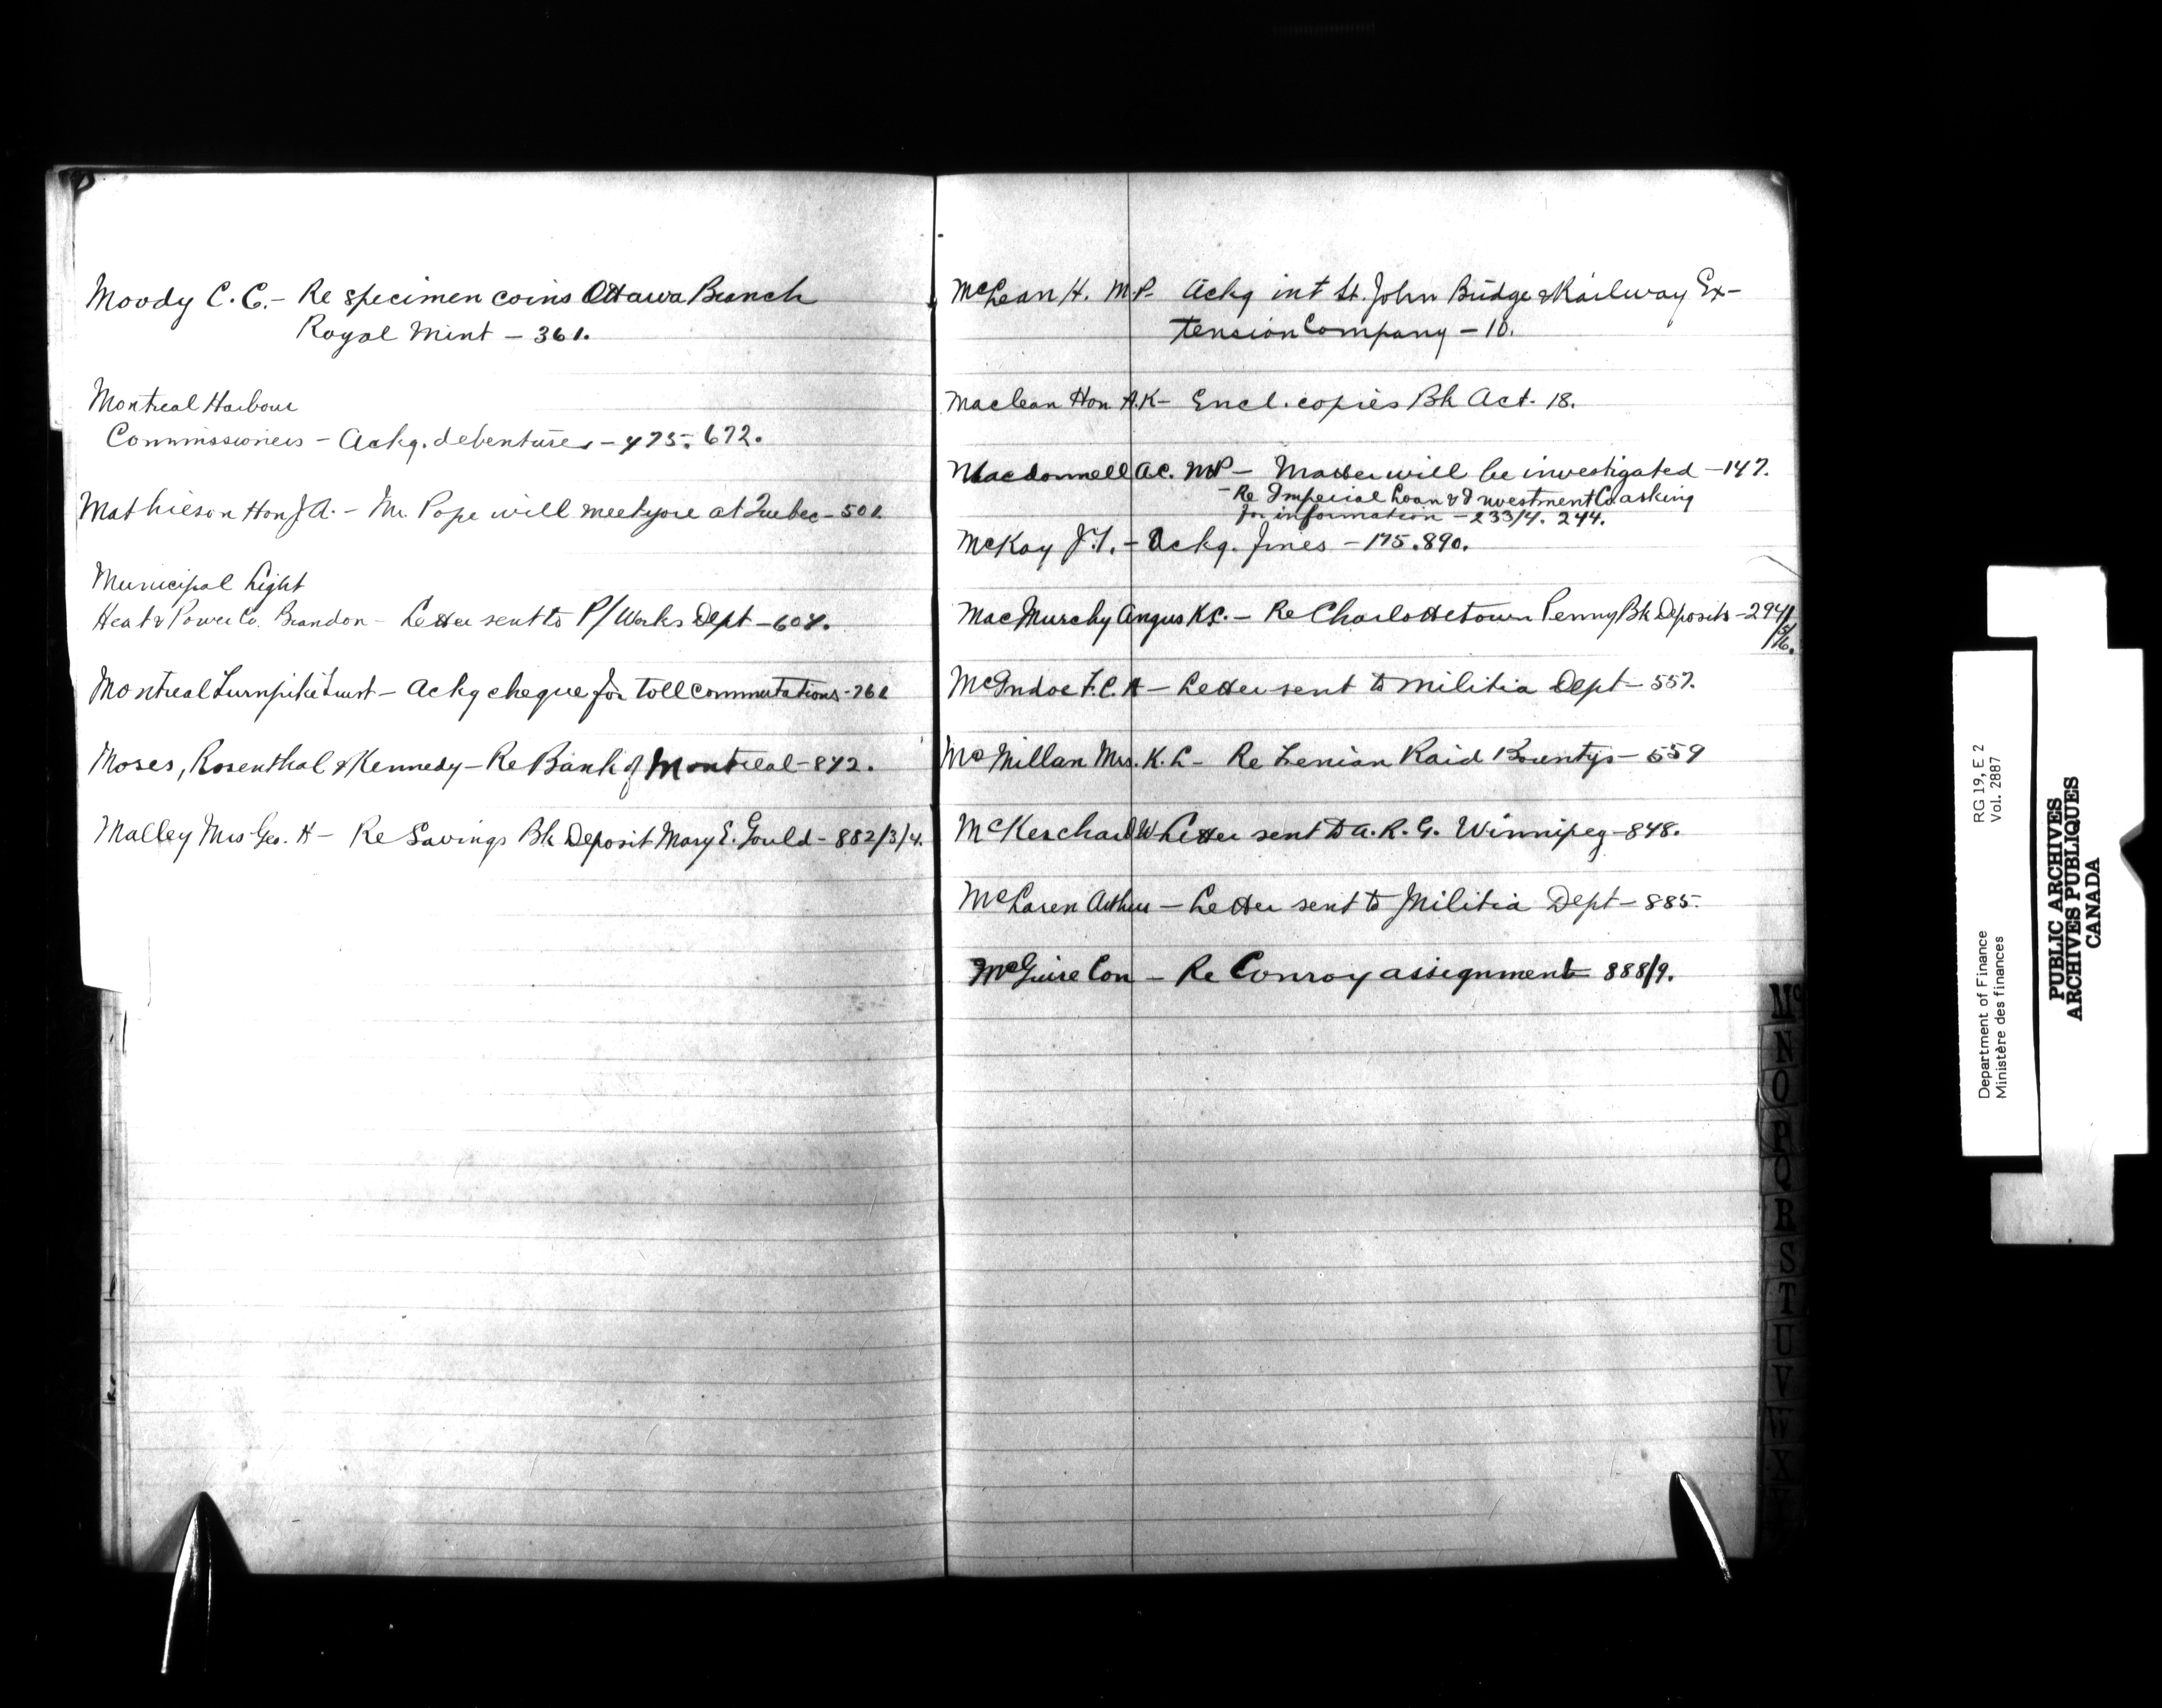 Moody C. C. - Re specimen coins Ottawa Branch
Royal Mint - 361.
Montreal Harbour
Commissioners - Ackg. debentures - 475. 672.
Mathieson Hon J A. - Mr. Pope will meet you at Quebec - 501.
Municipal Light
Heat & Power Co. Brandon - Letter sent to P/Works Dept - 604.
Montreal Turnpike Trust - Ackg cheque for toll commutations - 761
Moses, Rosenthal & Kennedy - Re Bank of Montreal - 842.
Malley Mrs Geo. H - Re Savings Bk Deposit Mary E. Gould - 882/3/4.
McLean H. M.P. Ackg int St. John Bridge & Railway Ex-
tension Company - 10.
Maclean Hon A.K - Encl. copies Bk Act. 18.
Macdonnell A.C. MP - Matter will be investigated - 147.
- Re Imperial Loan & Investment Co. asking
for information - 233/4. 244.
McKay J.T. - Ackg. fines - 175. 890.
MacMurchy Angus K.C. - Re Charlottetown Penny Bk Deposits - 294/
5/6.
McIndoe F.C.A - Letter sent to Militia Dept - 557.
McMillan Mrs. K. L - Re Fenian Raid Bounty - 559
McKerchar W Letter sent to A. R. G. Winnipeg - 848.
McLaren Arthur - Letter sent to Militia Dept - 885.
McGuire Con - Re Conroy assignment 888/9.
Mc
N
O
P
Q
R
S
T
U
V
W
X
Department of Finance RG 19, E 2
Ministère des finances Vol. 2887
PUBLIC ARCHIVES
ARCHIVES PUBLIQUES
CANADA